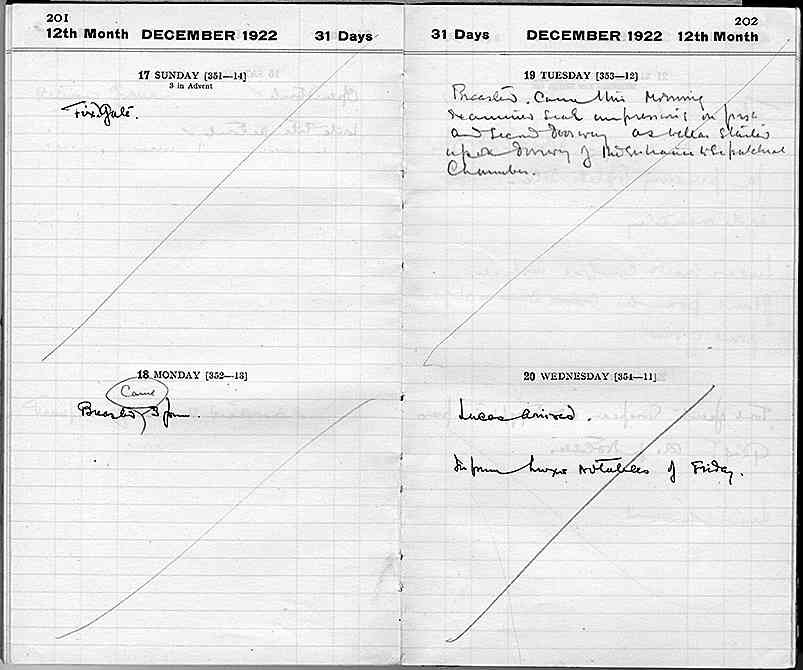 201
12th Month DECEMBER 1922 31 Days
17 SUNDAY [351—14]
3 in Advent
Fix Gate.
18 MONDAY [352—13]
Came
Breasted 3 pm.
202
31 Days DECEMBER 1922 12th Month
19 TUESDAY [353—12]
Breasted. Came this morning
examined seal impressions on first
and second doorway as well as
upon doorway of the entrance to Sepulchral
Chamber.
20 WEDNESDAY [354—11]
Lucas arrived.
Inform Luxor notables of Friday.